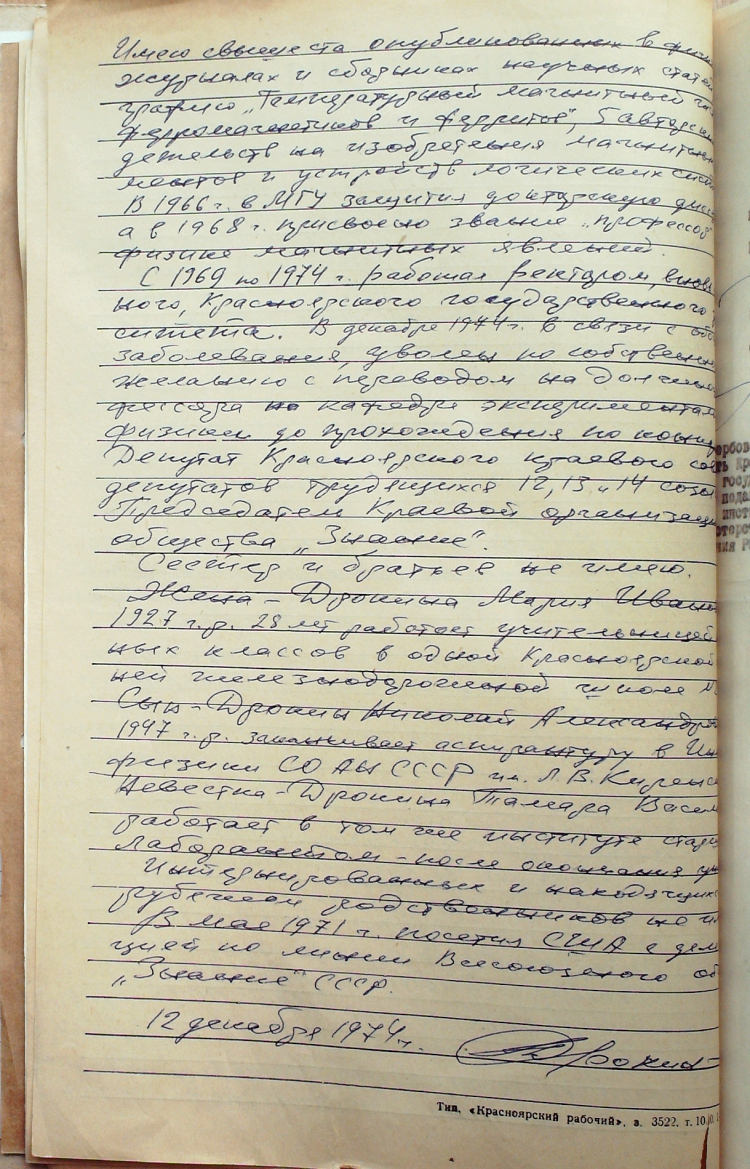 Имею свыше ста опубликованных в физич
журналах и сборниках научных статей
графию „Температурный магнитный ги
ферромагнетиков и ферритов", 5 авторских
детельств на изобретения магнитных
ментов и устройств логических сист
В 1966 г. в МГУ защитил докторскую дисс
а в 1968 г. присвоено звание „профессор"
физике магнитных явлений.
С 1969 по 1974 г. работал ректором, вновь
ного, Красноярского государственного
ситета. В декабре 1974 г. в связи с
заболевания, уволен по собственн
желанию с переводом на должно
фессора на кафедре эксперимента
физики до прохождения по конку
Депутат Красноярского краевого со
депутатов трудящихся 12, 13 и 14 созы
Председатель Краевой организаци
общества „Знание".
Сестер и братьев не имею.
Жена – Дрокина Мария Иван
1927 г.р. 25 лет работает учительницей
ных классов в одной Красноярской
ней железнодорожной школе №
Сын – Дрокин Николай Александро
1947 г.р. заканчивает аспирантуру в Ин
физики СО АН СССР им. Л.В. Киренс
Невестка – Дрокина Тамара Васил
работает в том же институте старш
лаборантом – после окончания
Интернированных и находящихс
рубежом родственников не и
В мае 1971 г. посетил США с дел
цией по линии Всесоюзного об
„Знание" СССР.
12 декабря 1974 г. Дрокин
Тип. «Красноярский рабочий». з. 3522. т. 10.